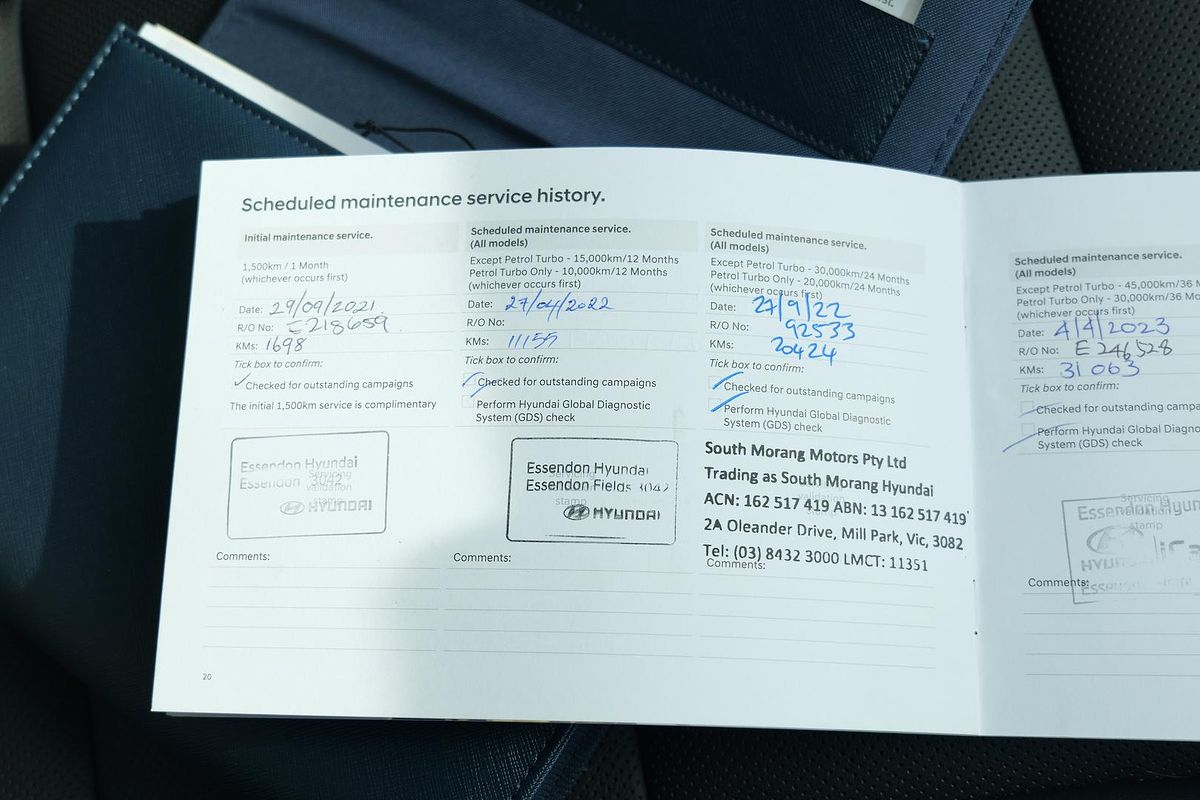 Scheduled maintenance service history.
Initial maintenance service.
1,500km / 1 Month
(whichever occurs first)
Date: 29/09/2021
R/O No: E218659
KMs: 1698
Tick box to confirm:
Checked for outstanding campaigns
The initial 1,500km service is complimentary
Essendon Hyundai
Essendon 3042
Servicing
validation
stamp
HYUNDAI
Comments:
20
Scheduled maintenance service.
(All models)
Except Petrol Turbo - 15,000km/12 Months
Petrol Turbo Only - 10,000km/12 Months
(whichever occurs first)
Date: 27/04/2022
R/O No:
KMs: 11155
Tick box to confirm:
Checked for outstanding campaigns
Perform Hyundai Global Diagnostic
System (GDS) check
Essendon Hyundai
Essendon Fields 3042
stamp
HYUNDAI
Comments:
Scheduled maintenance service.
(All models)
Except Petrol Turbo - 30,000km/24 Months
Petrol Turbo Only - 20,000km/24 Months
(whichever occurs first)
Date: 27/9/22
R/O No: 92533
KMs: 20424
Tick box to confirm:
Checked for outstanding campaigns
Perform Hyundai Global Diagnostic
System (GDS) check
South Morang Motors Pty Ltd
Trading as South Morang Hyundai
ACN: 162 517 419 ABN: 13 162 517 419
2A Oleander Drive, Mill Park, Vic, 3082
Tel: (03) 8432 3000 LMCT: 11351
Comments:
Scheduled maintenance service.
(All models)
Except Petrol Turbo - 45,000km/36 M
Petrol Turbo Only - 30,000km/36
(whichever occurs first)
Date: 4/4/2023
R/O No: E 246528
KMs: 31063
Tick box to confirm:
Checked for outstanding campa
Perform Hyundai Global Diagno
System (GDS) check
Servicing
Essendon Hyun
stamp
Comments: